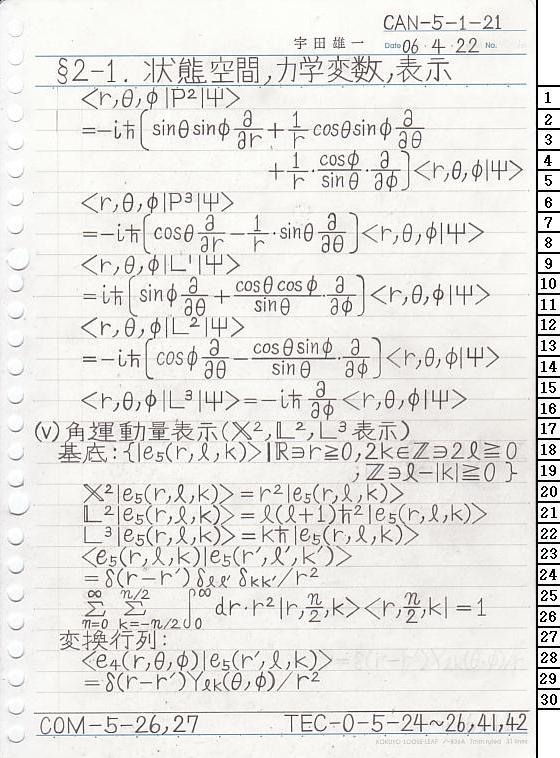 CAN-5-1-21
宇田雄一 Date 06・4・22 No.
§2-1. 状態空間,力学変数,表示
<r,θ,ϕ|P²|Ψ>
=-iℏ[sinθsinϕ ∂/∂r + 1/r cosθsinϕ ∂/∂θ
+ 1/r・cosϕ/sinθ・∂/∂ϕ]<r,θ,ϕ|Ψ>
<r,θ,ϕ|P³|Ψ>
=-iℏ[cosθ ∂/∂r - 1/r・sinθ ∂/∂θ]<r,θ,ϕ|Ψ>
<r,θ,ϕ|L¹|Ψ>
=iℏ[sinϕ ∂/∂θ + cosθcosϕ/sinθ・∂/∂ϕ]<r,θ,ϕ|Ψ>
<r,θ,ϕ|L²|Ψ>
=-iℏ[cosϕ ∂/∂θ - cosθsinϕ/sinθ・∂/∂ϕ]<r,θ,ϕ|Ψ>
<r,θ,ϕ|L³|Ψ>=-iℏ ∂/∂ϕ <r,θ,ϕ|Ψ>
(v)角運動量表示(𝕏²,𝕃²,L³表示)
基底:{|e₅(r,ℓ,k)>|ℝ∋r≧0,2k∈ℤ∋2ℓ≧0
;ℤ∋ℓ-|k|≧0}
𝕏²|e₅(r,ℓ,k)>=r²|e₅(r,ℓ,k)>
𝕃²|e₅(r,ℓ,k)>=ℓ(ℓ+1)ℏ²|e₅(r,ℓ,k)>
L³|e₅(r,ℓ,k)>=kℏ|e₅(r,ℓ,k)>
<e₅(r,ℓ,k)|e₅(r',ℓ',k')>
=δ(r-r')δℓℓ'δkk'/r²
∞Σn=0 n/2Σk=-n/2 ∫₀^∞ dr・r²|r,n/2,k><r,n/2,k|=1
変換行列:
<e₄(r,θ,ϕ)|e₅(r',ℓ,k)>
=δ(r-r')Yℓk(θ,ϕ)/r²
COM-5-26,27 TEC-0-5-24~26,41,42
KOKUYO LOOSE-LEAF ノ-836A 7mm ruled 31 lines
1
2
3
4
5
6
7
8
9
10
11
12
13
14
15
16
17
18
19
20
21
22
23
24
25
26
27
28
29
30